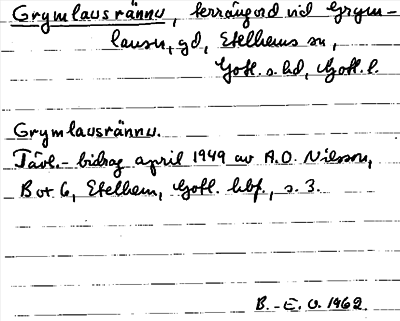 Grymlausrännu, terrängord vid Grym-
lausu, gd, Etelhems sn,
Gotl. s. hd, Gotl. l.
Grymlausrännu.
Tävl.- bidrag april 1949 av A.O. Nilsson,
Box 6, Etelhem, Gotl. hbf., s. 3.
B.-E. O. 1962.